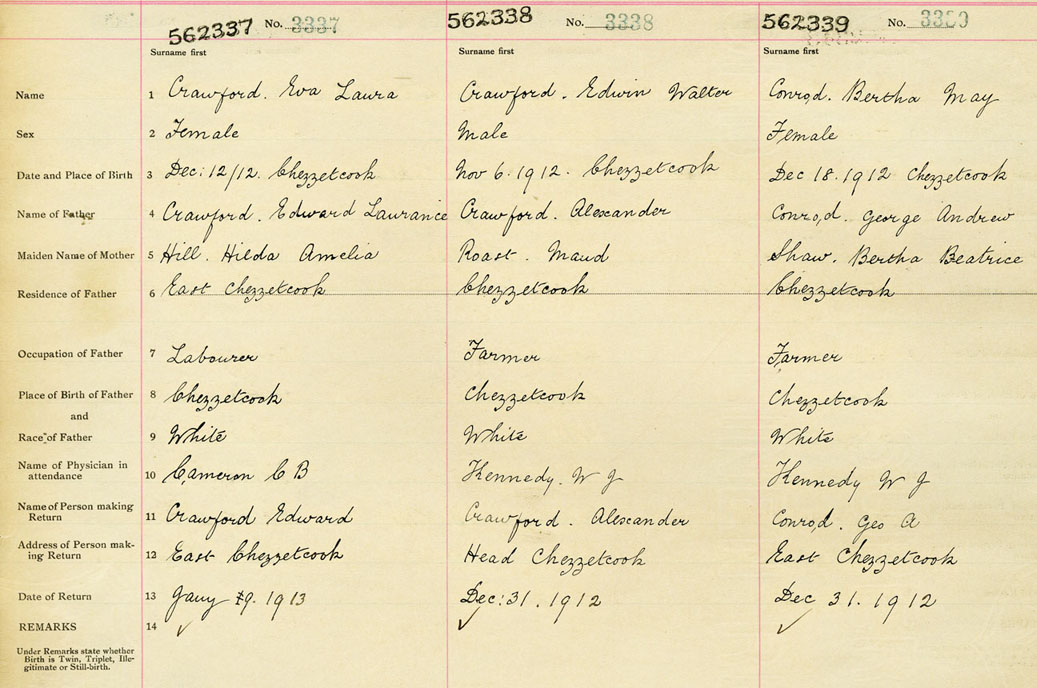 562337 No. 3337 562338 No. 3338 562339 No.
Surname first Surname first Surname first
Name 1 Crawford. Eva Laura Crawford. Edwin Walter Conrod. Bertha May
Sex 2 Female Male Female
Date and Place of Birth 3 Dec: 12/12. Chezzetcook Nov 6. 1912. Chezzetcook Dec 18. 1912 Chezzetcook
Name of Father 4 Crawford. Edward Laurance Crawford. Alexander Conrod. George Andrew
Maiden Name of Mother 5 Hill. Hilda Amelia Roast. Maud Shaw. Bertha Beatrice
Residence of Father 6 East Chezzetcook Chezzetcook Chezzetcook
Occupation of Father 7 Labourer Farmer Farmer
Place of Birth of Father 8 Chezzetcook Chezzetcook Chezzetcook
and
Race of Father 9 White White White
Name of Physician in
attendance 10 Cameron C B Kennedy. W J Kennedy W J
Name of Person making
Return 11 Crawford Edward Crawford. Alexander Conrod. Geo A
Address of Person mak-
ing Return 12 East Chezzetcook Head Chezzetcook East Chezzetcook
Date of Return 13 Jany 9. 1913 Dec: 31. 1912 Dec 31. 1912
REMARKS 14
Under Remarks state whether
Birth is Twin, Triplet, Ille-
gitimate or Still-birth.